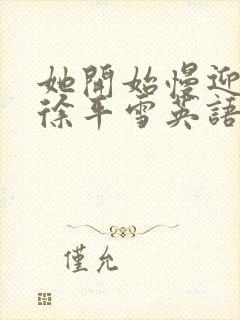 她開始慢迎
徐平雪英語
僅允